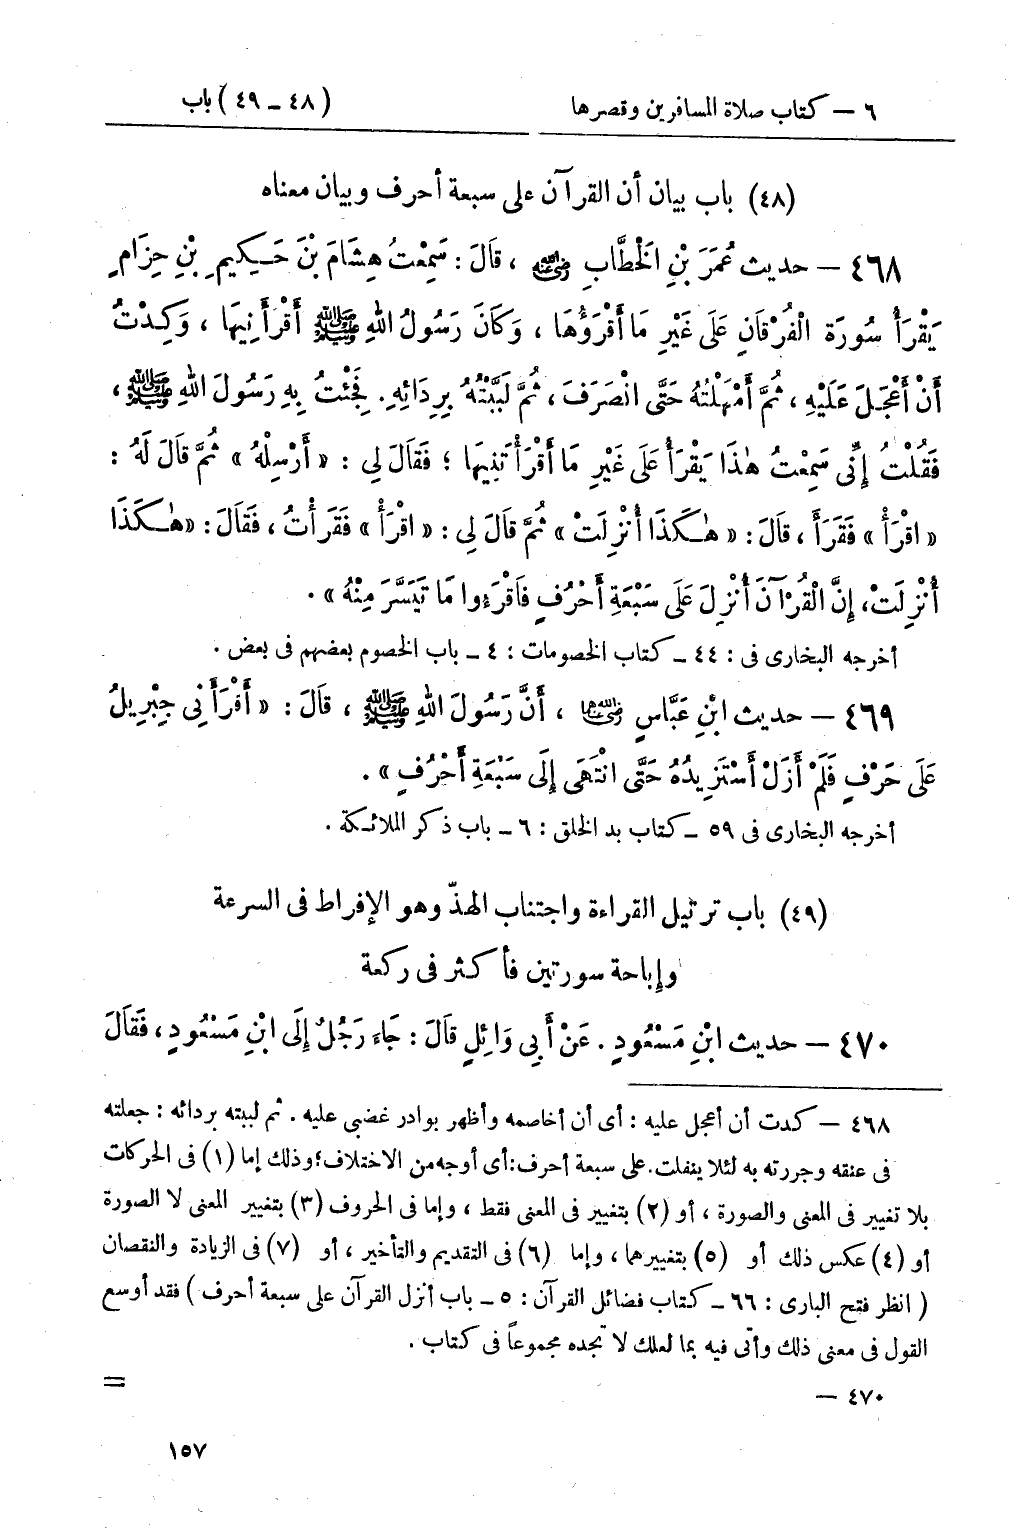 ٦ — كتاب صلاة المسافرين وقصرها
(٤٨ – ٤٩) باب
(٤٨) باب بيان أن القرآن على سبعة أحرف وبيان معناه
٤٦٨ — حديث عُمَرَ بْنِ الْخَطَّابِ رضي الله عنه ، قَالَ : سَمِعْتُ هِشَامَ بْنَ حَكِيمِ بْنِ حِزَامٍ
يَقْرَأُ سُورَةَ الْفُرْقَانِ عَلَى غَيْرِ مَا أَقْرَؤُهَا ، وَكَانَ رَسُولُ اللهِ ﷺ أَقْرَأَنِيهَا ، وَكِدْتُ
أَنْ أَعْجَلَ عَلَيْهِ ، ثُمَّ أَمْهَلْتُهُ حَتَّى انْصَرَفَ ، ثُمَّ لَبَّبْتُهُ بِرِدَائِهِ . فَجِئْتُ بِهِ رَسُولَ اللهِ ﷺ ،
فَقُلْتُ إِنِّي سَمِعْتُ هٰذَا يَقْرَأُ عَلَى غَيْرِ مَا أَقْرَأْتَنِيهَا ؛ فَقَالَ لِي : « أَرْسِلْهُ » ثُمَّ قَالَ لَهُ :
« اقْرَأْ » فَقَرَأَ ، قَالَ : « هٰكَذَا أُنْزِلَتْ » ثُمَّ قَالَ لِي : « اقْرَأْ » فَقَرَأْتُ ، فَقَالَ : « هٰكَذَا
أُنْزِلَتْ ، إِنَّ الْقُرْآنَ أُنْزِلَ عَلَى سَبْعَةِ أَحْرُفٍ فَاقْرَءُوا مَا تَيَسَّرَ مِنْهُ » .
أخرجه البخارى فى : ٤٤ – كتاب الخصومات : ٤ – باب الخصوم بعضهم فى بعض .
٤٦٩ — حديث ابْنِ عَبَّاسٍ رضي الله عنهما ، أَنَّ رَسُولَ اللهِ ﷺ ، قَالَ : « أَقْرَأَنِي جِبْرِيلُ
عَلَى حَرْفٍ فَلَمْ أَزَلْ أَسْتَزِيدُهُ حَتَّى انْتَهَى إِلَى سَبْعَةِ أَحْرُفٍ » .
أخرجه البخارى فى ٥٩ – كتاب بد الخلق : ٦ – باب ذكر الملائكة .
(٤٩) باب ترتيل القراءة واجتناب الهذّ وهو الإفراط فى السرعة
وإباحة سورتين فأكثر فى ركعة
٤٧٠ — حديث ابْنِ مَسْعُودٍ . عَنْ أَبِي وَائِلٍ قَالَ : جَاءَ رَجُلٌ إِلَى ابْنِ مَسْعُودٍ ، فَقَالَ
٤٦٨ — كدت أن أعجل عليه : أى أن أخاصمه وأظهر بوادر غضبى عليه . ثم لببته بردائه : جعلته
فى عنقه وجررته به لئلا ينفلت . على سبعة أحرف : أى أوجه من الاختلاف ؛ وذلك إما (١) فى الحركات
بلا تغيير فى المعنى والصورة ، أو (٢) بتغيير فى المعنى فقط ، وإما فى الحروف (٣) بتغيير المعنى لا الصورة
أو (٤) عكس ذلك أو (٥) بتغييرهما ، وإما (٦) فى التقديم والتأخير ، أو (٧) فى الزيادة والنقصان
( انظر فتح البارى : ٦٦ – كتاب فضائل القرآن : ٥ – باب أنزل القرآن على سبعة أحرف ) فقد أوسع
القول فى معنى ذلك وأتى فيه بما لعلك لا تجده مجموعاً فى كتاب .
٤٧٠ —
=
١٥٧